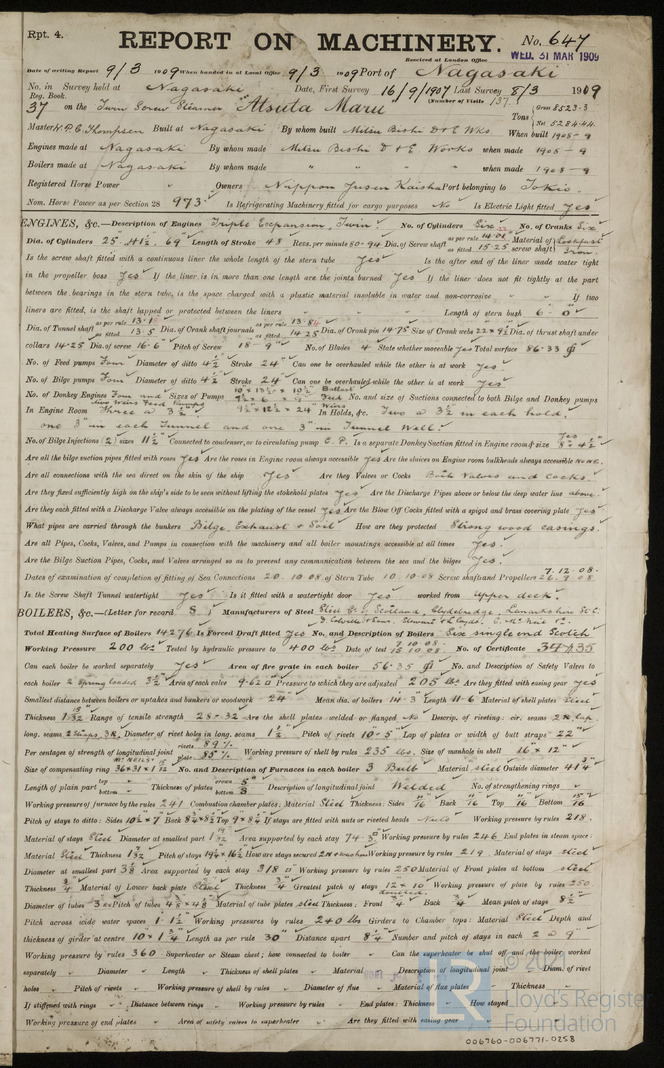 Rpt. 4.
REPORT ON MACHINERY.
No. 647
Received at London Office WED. 31 MAR 1909
Date of writing Report 9/3 1909 When handed in at Local Office 9/3 1909 Port of Nagasaki
No. in Survey held at Nagasaki Date, First Survey 16/9/1907 Last Survey 8/3 1909
Reg. Book. (Number of Visits 137)
37 on the Twin Screw Steamer "Atsuta Maru Tons Gross 8523.3
Master W. P. C. Thompson Built at Nagasaki By whom built Mitsu Bishi D & E Wks. When built 1908-9
Engines made at Nagasaki By whom made Mitsu Bishi D & E Works when made 1908-9
Boilers made at Nagasaki By whom made " " " when made 1908-9
Registered Horse Power " Owners Nippon Yusen Kaisha Port belonging to Tokio.
Nom. Horse Power as per Section 28 973 Is Refrigerating Machinery fitted for cargo purposes No Is Electric Light fitted Yes
ENGINES, &c.—Description of Engines Triple Expansion, Twin. No. of Cylinders Six No. of Cranks Six
Dia. of Cylinders 25" 41½" 69" Length of Stroke 48 Revs. per minute 80-94 Dia. of Screw shaft as per rule 14.06 as fitted 15.25 Material of screw shaft Iron.
Is the screw shaft fitted with a continuous liner the whole length of the stern tube Yes Is the after end of the liner made water tight
in the propeller boss Yes If the liner is in more than one length are the joints burned Yes If the liner does not fit tightly at the part
between the bearings in the stern tube, is the space charged with a plastic material insoluble in water and non-corrosive " If two
liners are fitted, is the shaft lapped or protected between the liners " Length of stern bush 6' 0"
Dia. of Tunnel shaft as per rule 13.1 as fitted 13.5 Dia. of Crank shaft journals as per rule 13.81 as fitted 14.25 Dia. of Crank pin 14.75 Size of Crank webs 22 x 9½ Dia. of thrust shaft under
collars 14.25 Dia. of screw 16.6 Pitch of Screw 18-9" No. of Blades 4 State whether moveable Yes Total surface 86.33
No. of Feed pumps Four Diameter of ditto 4½ Stroke 24" Can one be overhauled while the other is at work Yes
No. of Bilge pumps Four Diameter of ditto 4½ Stroke 24" Can one be overhauled while the other is at work Yes
No. of Donkey Engines Four and Sizes of Pumps No. and size of Suctions connected to both Bilge and Donkey pumps
In Engine Room Three @ 3½" In Holds, &c. Two @ 3½ in each hold.
one 3" in each Tunnel and one 3" in Tunnel Well.
No. of Bilge Injections (2) sizes 11½" Connected to condenser, or to circulating pump C.P. Is a separate Donkey Suction fitted in Engine room & size Yes
Are all the bilge suction pipes fitted with roses Yes Are the roses in Engine room always accessible Yes Are the sluices on Engine room bulkheads always accessible None
Are all connections with the sea direct on the skin of the ship Yes Are they Valves or Cocks Both Valves and cocks.
Are they fixed sufficiently high on the ship's side to be seen without lifting the stokehold plates Yes Are the Discharge Pipes above or below the deep water line above.
Are they each fitted with a Discharge Valve always accessible on the plating of the vessel Yes Are the Blow Off Cocks fitted with a spigot and brass covering plate Yes
What pipes are carried through the bunkers Bilge, Exhaust & Soil How are they protected Strong wood casings.
Are all Pipes, Cocks, Valves, and Pumps in connection with the machinery and all boiler mountings accessible at all times Yes.
Are the Bilge Suction Pipes, Cocks, and Valves arranged so as to prevent any communication between the sea and the bilges Yes.
Dates of examination of completion of fitting of Sea Connections 20.10.08 of Stern Tube 10.10.08 Screw shaft and Propeller 7.12.08
Is the Screw Shaft Tunnel watertight Yes Is it fitted with a watertight door Yes worked from Upper deck.
BOILERS, &c.—(Letter for record S) Manufacturers of Steel Steel Co. of Scotland, Clydebridge, Lanarkshire S.C.
Total Heating Surface of Boilers 14276 Is Forced Draft fitted Yes No. and Description of Boilers Six single end Scotch
Working Pressure 200 lbs. Tested by hydraulic pressure to 400 lbs. Date of test No. of Certificate
Can each boiler be worked separately Yes Area of fire grate in each boiler 56.35 No. and Description of Safety Valves to
each boiler 2 Spring loaded 3½" Area of each valve 9.620 Pressure to which they are adjusted 205 lbs Are they fitted with easing gear yes
Smallest distance between boilers or uptakes and bunkers or woodwork 24" Mean dia. of boilers 14-3 Length 11-6 Material of shell plates Steel
Thickness Range of tensile strength 28-32 Are the shell plates welded or flanged No Descrip. of riveting: cir. seams 2R Lap
long. seams Diameter of rivet holes in long. seams 1½" Pitch of rivets 10-5 Lap of plates or width of butt straps 22"
Per centages of strength of longitudinal joint rivets 89% plate 85% Working pressure of shell by rules 235 lbs. Size of manhole in shell 16" x 12"
Size of compensating ring No. and Description of Furnaces in each boiler 3 Bulb Material steel Outside diameter
Length of plain part top bottom Thickness of plates crown bottom Description of longitudinal joint Welded No. of strengthening rings "
Working pressure of furnace by the rules 241 Combustion chamber plates: Material Steel Thickness: Sides Back Top Bottom
Pitch of stays to ditto: Sides Back Top If stays are fitted with nuts or riveted heads Nuts Working pressure by rules 218.
Material of stays Steel Diameter at smallest part Area supported by each stay Working pressure by rules 246 End plates in steam space:
Material Steel Thickness Pitch of stays How are stays secured Working pressure by rules 219 Material of stays steel
Diameter at smallest part Area supported by each stay 318 Working pressure by rules 250 Material of Front plates at bottom steel
Thickness Material of Lower back plate Steel Thickness Greatest pitch of stays 12 x 10 Working pressure of plate by rules 250
Diameter of tubes Pitch of tubes Material of tube plates steel Thickness: Front Back Mean pitch of stays 8½"
Pitch across wide water spaces Working pressures by rules 240 lbs Girders to Chamber tops: Material Steel Depth and
thickness of girder at centre Length as per rule 30" Distance apart Number and pitch of stays in each 2 @ 9"
Working pressure by rules 360 Superheater or Steam chest; how connected to boiler " Can the superheater be shut off and the boiler worked
separately " Diameter " Length " Thickness of shell plates " Material " Description of longitudinal joint " Diam. of rivet
holes " Pitch of rivets " Working pressure of shell by rules " Diameter of flue " Material of flue plates " Thickness "
If stiffened with rings " Distance between rings " Working pressure by rules " End plates: Thickness " How stayed "
Working pressure of end plates " Area of safety valves to superheater " Are they fitted with easing gear "
© 2021
LR
Lloyd's Register
Foundation
006760-006771-0258